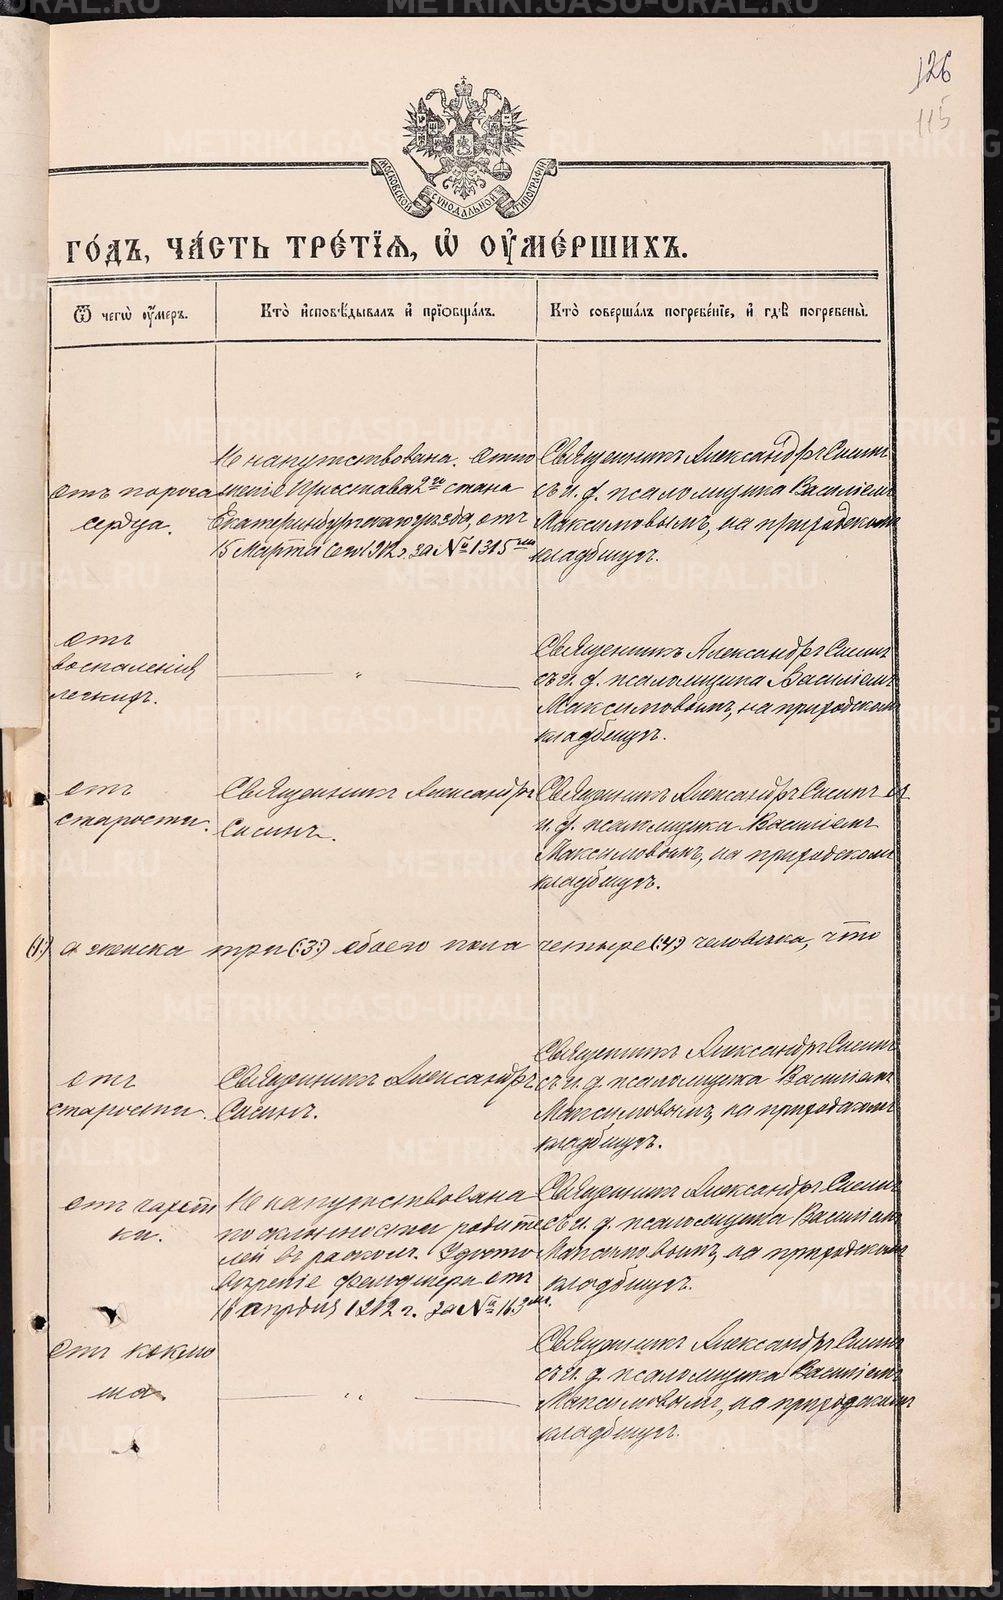 126
115
МОСКОВСКОЙ СѴНОДАЛЬНОЙ ТИПОГРАФІИ
ГО́ДЪ, ЧА́СТЬ ТРЕ́ТЇѦ, Ѡ҆ ОУ҆МЕ́РШИХЪ.
Ѿ чегѡ̀ оу҆́меръ.
Кто̀ и҆сповѣ́дывалъ и҆ прїѡбща́лъ.
Кто̀ соверша́лъ погребе́нїе, и҆ гдѣ̀ погребены̀.
отъ порока
сердца.
Не напутствована. Отно
шеніе Пристава 2го стана
Екатеринбургскаго уезда, отъ
15 Марта сего 1912 г. за № 1315ым
Священникъ Александръ Сисинъ
съ и. д. псаломщика Василіемъ
Максимовымъ, на приходскомъ
кладбищѣ.
отъ
воспаленія
легкихъ.
— „ —
Священникъ Александръ Сисинъ
съ и. д. псаломщика Василіемъ
Максимовымъ, на приходскомъ
кладбищѣ.
отъ
старости.
Священникъ Александръ
Сисинъ.
Священникъ Александръ Сисинъ съ
и. д. псаломщика Василіемъ
Максимовымъ, на приходскомъ
кладбищѣ.
(1:) а женска три (:3:) обоего пола четыре (:4:) человѣка, что
отъ
старости.
Священникъ Александръ
Сисинъ.
Священникъ Александръ Сисинъ
съ и. д. псаломщика Василіемъ
Максимовымъ, на приходскомъ
кладбищѣ.
отъ чахот
ки.
Не напутствована
по склонности родите
лей въ расколъ. Удосто
вѣреніе фельдшера отъ
18 апрѣля 1912 г. за № 163ым.
Священникъ Александръ Сисинъ
съ и. д. псаломщика Василіемъ
Максимовымъ, на приходскомъ
кладбищѣ.
отъ коклю
ша.
— „ —
Священникъ Александръ Сисинъ
съ и. д. псаломщика Василіемъ
Максимовымъ, на приходскомъ
кладбищѣ.
METRIKI.GASO-URAL.RU